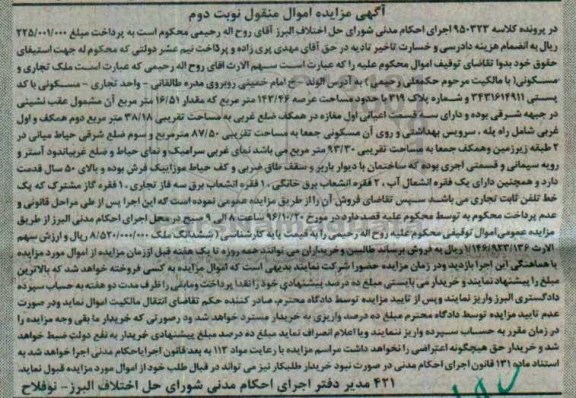 آگهی مزایده اموال منقول نوبت دوم
در پرونده کلاسه ۹۵۰۳۲۳ اجرای احکام مدنی شورای حل اختلاف البرز آقای روح اله رحیمی محکوم است به پرداخت مبلغ ۲۲۵/۰۰۱/۰۰۰
ریال به انضمام هزینه دادرسی و خسارت تاخیر تادیه در حق آقای مهدی پری زاده و پرداخت نیم عشر دولتی که محکوم له جهت استیفای
حقوق خود بدوا تقاضای توقیف اموال محکوم علیه را که عبارت است سهم الارث آقای روح اله رحیمی که عبارت است ملک تجاری و
مسکونی (با مالکیت مرحوم حکمعلی رحیمی) به آدرس الوند - خ امام خمینی روبروی مدره طالقانی - واحد تجاری - مسکونی با کد
پستی ۳۴۳۱۶۱۴۹۱۱ و شماره پلاک ۳۱۹ با حدود مساحت عرصه ۱۴۳/۴۶ متر مربع که مقدار ۱۶/۵۱ متر مربع آن مشمول عقب نشینی
در جبهه شرقی بوده و دارای سه قسمت اعیانی اول مغازه در همکف ضلع غربی به مساحت تقریبی ۳۸/۱۸ متر مربع دوم همکف و اول
غربی شامل راه پله ، سرویس بهداشتی و روی آن مسکونی جمعا به مساحت تقریبی ۸۷/۵۰ مترمربع و سوم ضلع شرقی حیاط میانی در
۲ طبقه زیرزمین وهمکف جمعا به مساحت تقریبی ۹۳/۳۰ متر مربع می باشد نمای غربی سرامیک و نمای حیاط و ضلع غربیاندود آستر و
رویه سیمانی و قسمتی آجری بوده که ساختمان با دیوار باربر و سقف طاق ضربی و کف حیاط موزاییک فرش بوده و بالای ۵۰ سال قدمت
دارد و همچنین دارای یک فقره انشعال آب ، ۲ فقره انشعاب برق خانگی ، ۱ فقره انشعاب برق سه فاز تجاری ، ۱ فقره گاز مشترک که یک
خط تلفن ثابت تجاری می باشد سپس تقاضای فروش آن را از طریق مزایده عمومی نموده است که این اجرا پس از طی مراحل قانونی و
عدم پرداخت محکوم به توسط محکوم علیه قصد دارد در مورخ ۹۶/۱۰/۲۰ ساعت ۸ الی ۹ صبح در محل اجرای احکام مدنی البرز از طریق
مزایده عمومی اموال توقیفی محکوم علیه روح اله رحیمی را به قیمت پایه کارشناسی (ششدانگ ملک ۸/۵۲۰/۰۰۰/۰۰۰ ریال و ارزش سهم
الارث ۱/۱۴۶/۹۲۳/۱۳۶ ریال به فروش برساند طالبین وخریداران می توانند همه روزه تا یک هفته قبل اززمان مزایده از اموال مورد مزایده
با هماهنگی این اجرا بازدید ودر زمان مزایده حضورا شرکت نمایند بدیهی است که اموال مزایده به کسی فروخته خواهد شد که بالاترین
مبلغ را پیشنهاد نمایند و خریدار می بایستی مبلغ ده درصد پیشنهادی خود را نقدا پرداخت ومابقی را ظرف مدت دو هفته به حساب سپرده
دادگستری البرز واریز نمایند وپس از تایید مزایده توسط دادگاه محترم، صادر کننده حکم تقاضای انتقال مالکیت اموال نماید ودر صورت
عدم تایید مزایده توسط دادگاه محترم مبلغ ده درصد واریزی به خریدار مسترد خواهد شد ودر صورتی که خریدار ما بقی وجه مزایده را
در زمان مقرر به حساب سپرده واریز ننمایند ویا اعلام انصراف نماید مبلغ ده درصد مبلغ پیشنهادی خریدار به نفع دولت ضبط خواهد
شد و خریدار حق هیچگونه اعتراضی را نخواهد داشت مراسم مزایده با رعایت مواد ۱۱۳ به بعد قانون اجرایاحکام مدنی اجرا خواهد شد به
استناد ماده ۱۳۱ قانون اجرای احکام مدنی در صورت نبود خریدار طلبکار نیز می تواند در قبال طلب خود از اموال مورد مزایده قبول نماید
۴۲۱ مدیر دفتر اجرای احکام مدنی شورای حل اختلاف البرز - نوفلاح